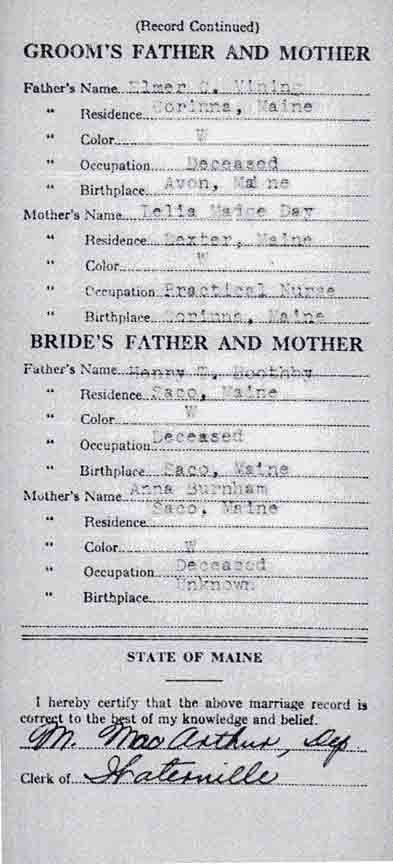 (Record Continued)
GROOM'S FATHER AND MOTHER
Father's Name Elmer C. Vining
" Residence Corinna, Maine
" Color W
" Occupation Deceased
" Birthplace Avon, Maine
Mother's Name Lelia Madge Day
" Residence Dexter, Maine
" Color W
" Occupation Practical Nurse
" Birthplace Corinna, Maine
BRIDE'S FATHER AND MOTHER
Father's Name Henry T. Boothby
" Residence Saco, Maine
" Color W
" Occupation Deceased
" Birthplace Saco, Maine
Mother's Name Anna Burnham
" Residence Saco, Maine
" Color W
" Occupation Deceased
" Birthplace Unknown
STATE OF MAINE
I hereby certify that the above marriage record is
correct to the best of my knowledge and belief.
M. MacArthur, Dep.
Clerk of Waterville